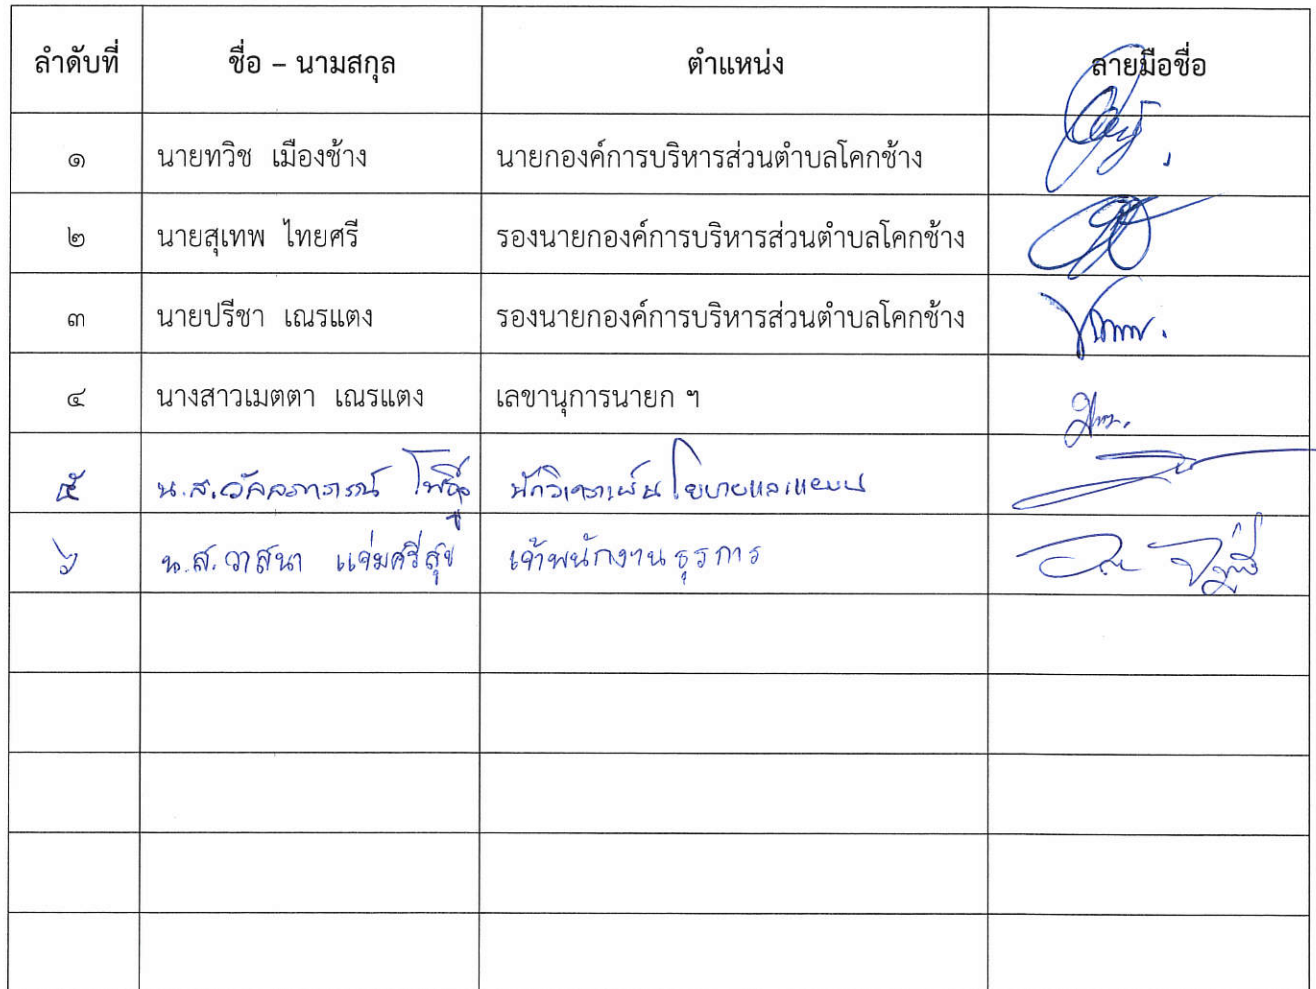 ลำดับที่ ชื่อ – นามสกุล ตำแหน่ง ลายมือชื่อ
๑ นายทวิช เมืองช้าง นายกองค์การบริหารส่วนตำบลโคกช้าง
๒ นายสุเทพ ไทยศรี รองนายกองค์การบริหารส่วนตำบลโคกช้าง
๓ นายปรีชา เณรแตง รองนายกองค์การบริหารส่วนตำบลโคกช้าง
๔ นางสาวเมตตา เณรแตง เลขานุการนายก ฯ
๕ น.ส.วัลลภาภรณ์ นักวิเคราะห์นโยบายและแผน
๖ น.ส.วาสนา แจ่มศรีสุข เจ้าพนักงานธุรการ